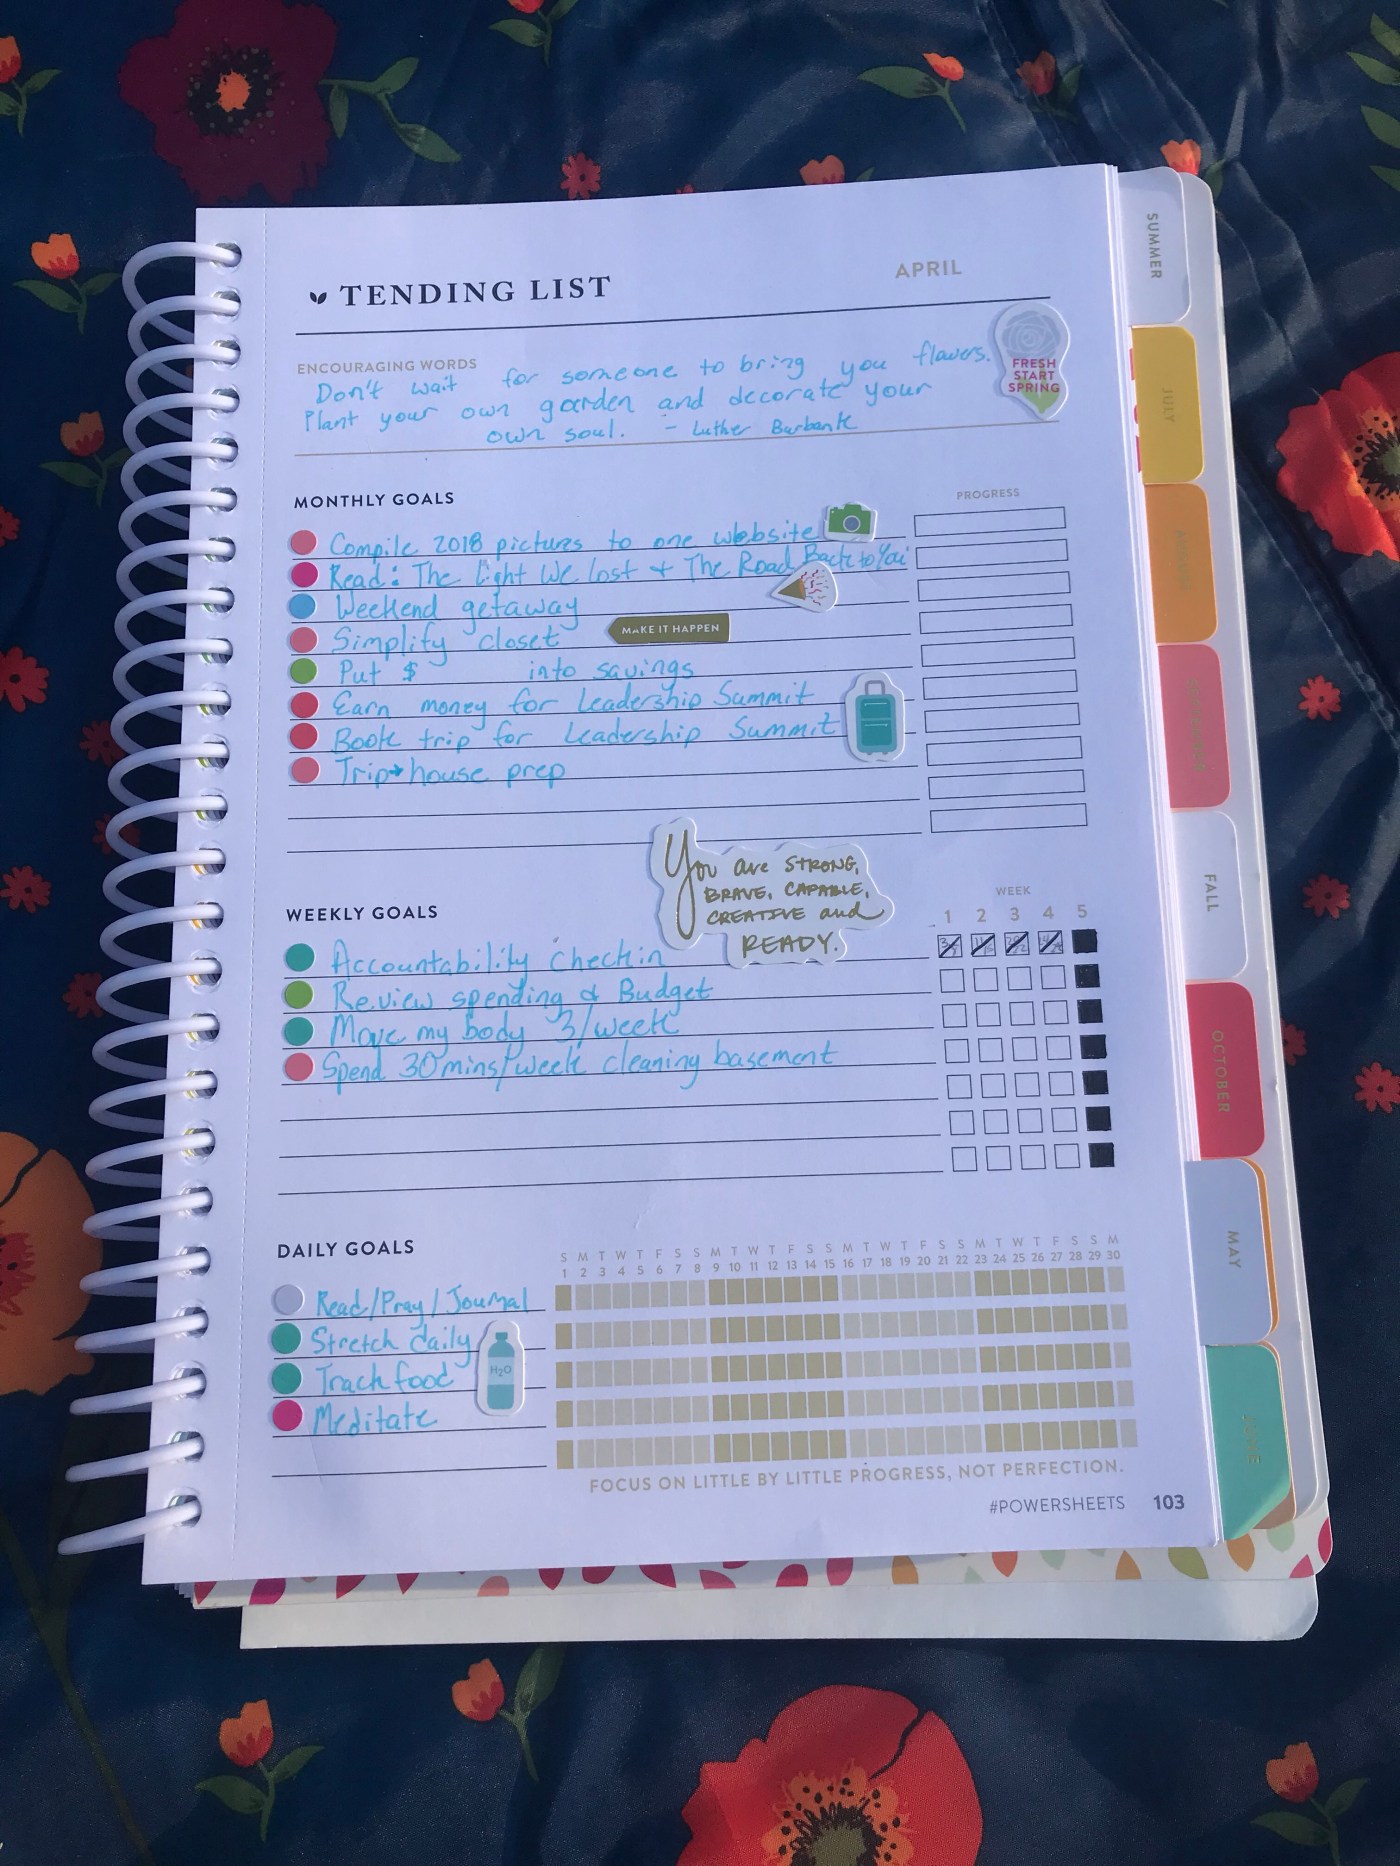 TENDING LIST
APRIL
ENCOURAGING WORDS
Don't wait for someone to bring you flowers.
Plant your own garden and decorate your
own soul. - Luther Burbank
FRESH
START
SPRING
MONTHLY GOALS
PROGRESS
Compile 2018 pictures to one website
Read: The Light We Lost + The Road Back to You
Weekend getaway
Simplify closet
MAKE IT HAPPEN
Put $ into savings
Earn money for Leadership Summit
Book trip for Leadership Summit
Trip→house prep
You are STRONG,
BRAVE, CAPABLE,
CREATIVE and
READY.
WEEKLY GOALS
WEEK
1 2 3 4 5
Accountability checkin
Review spending & Budget
Move my body 3/week
Spend 30mins/week cleaning basement
DAILY GOALS
S M T W T F S S M T W T F S S M T W T F S S M T W T F S S M
1 2 3 4 5 6 7 8 9 10 11 12 13 14 15 16 17 18 19 20 21 22 23 24 25 26 27 28 29 30
Read/Pray/Journal
Stretch daily
H2O
Track food
Meditate
FOCUS ON LITTLE BY LITTLE PROGRESS, NOT PERFECTION.
#POWERSHEETS 103
SUMMER
JULY
AUGUST
SEPTEMBER
FALL
OCTOBER
MAY
JUNE